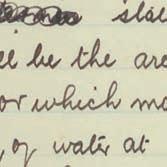 ll be the are
or which mo
, of water at